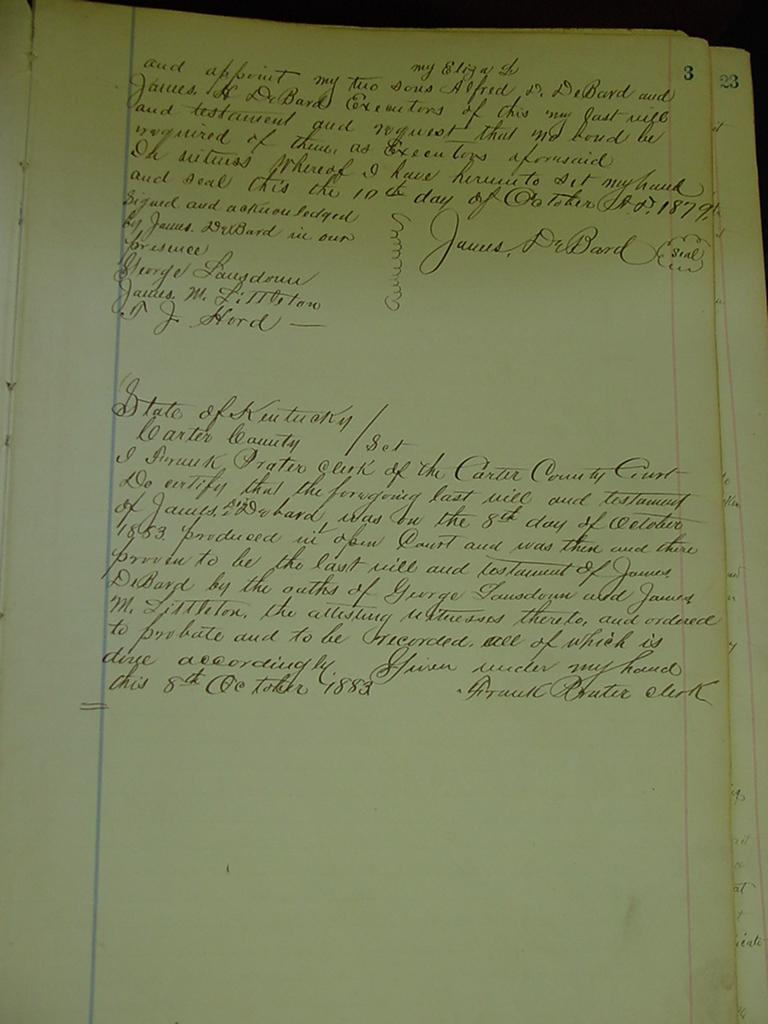 3
23
my Eliza F
and appoint my two sons Alfred D. DeBard and
James H DeBard Executors of this my last will
and testament and request that no bond be
required of them, as Executors aforesaid
In witness Whereof I have hereunto set my hand
and seal this the 10th day of October A.D. 1879.
Signed and acknowledged
by James. DeBard in our
presence
James. DeBard (Seal)
George Lansdown
James. M. Littleton
T J Hord —
State of Kentucky /
Carter County / Sct
I Frank Prater clerk of the Carter County Court
Do certify that the foregoing last will and testament
of James DeBard, was on the 8th day of October
1883 produced in open Court and was then and there
proven to be the last will and testament of James
DeBard by the oaths of George Lansdown and James
M. Littleton, the attesting witnesses thereto, and ordered
to probate and to be recorded. all of which is
done accordingly. Given under my hand
this 8th October 1883 Frank Prater clerk